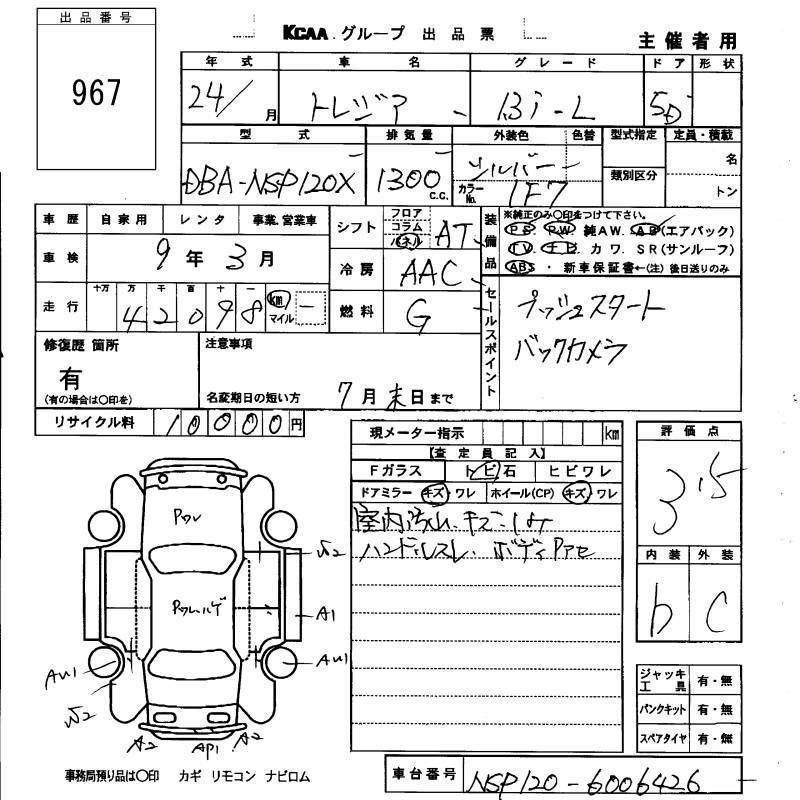 出品番号
967
KCAA グループ 出品票
主催者用
年式 車名 グレード ドア 形状
24/ 月 トレジア 1.3i-L 5D
型式 排気量 外装色 色替 型式指定 定員・積載
DBA-NSP120X 1300 C.C. シルバー
カラーNo. 1F7
類別区分
名
トン
車歴 自家用 レンタ 事業.営業車
車検 9年3月
走行 十万 万 千 百 十 一
42098 km マイル
シフト フロア コラム パネル AT
冷房 AAC
燃料 G
装備品
※純正のみ○印をつけて下さい。
P.S. P.W. 純AW. A.B(エアバック)
T.V. ナビ カワ. SR(サンルーフ)
ABS ・ 新車保証書←(注) 後日送りのみ
セールスポイント
プッシュスタート
バックカメラ
修復歴 箇所
有
(有の場合は○印を)
注意事項
名変期日の短い方 7月末日まで
リサイクル料 10000円
現メーター指示 km
【査定員記入】
Fガラス トビ石 ヒビワレ
ドアミラー キズ ワレ ホイール(CP) キズ ワレ
室内汚れ、キズ、
ハンドルスレ、ボディ
評価点
3.5
内装 外装
b C
ジャッキ工具 有・無
パンクキット 有・無
スペアタイヤ 有・無
A1
AU1
AU1
A2 AP1 A2
事務局預り品は○印 カギ リモコン ナビロム
車台番号 NSP120-6006426